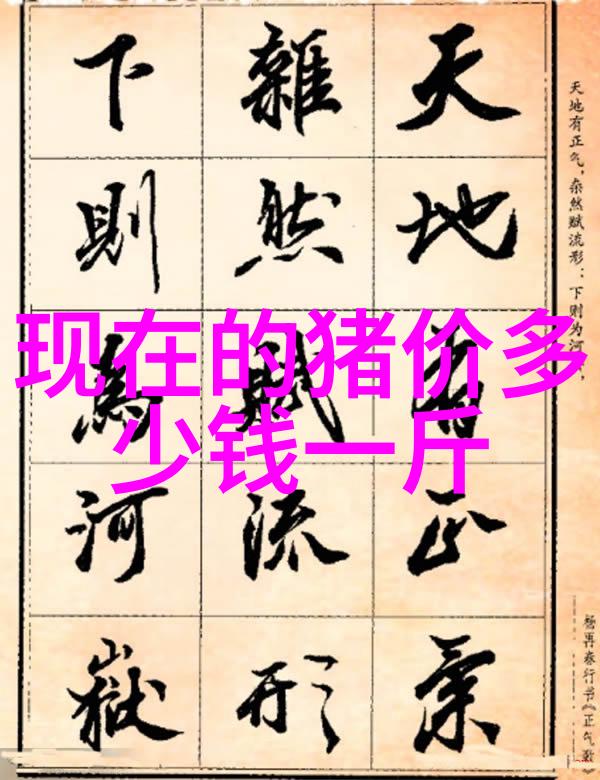 天地有正氣
雜然賦流形
下則為河嶽
天地有正气，杂然赋流形：下则为河
杨再春行书《正气歌》
现在的猪价多
少钱一斤